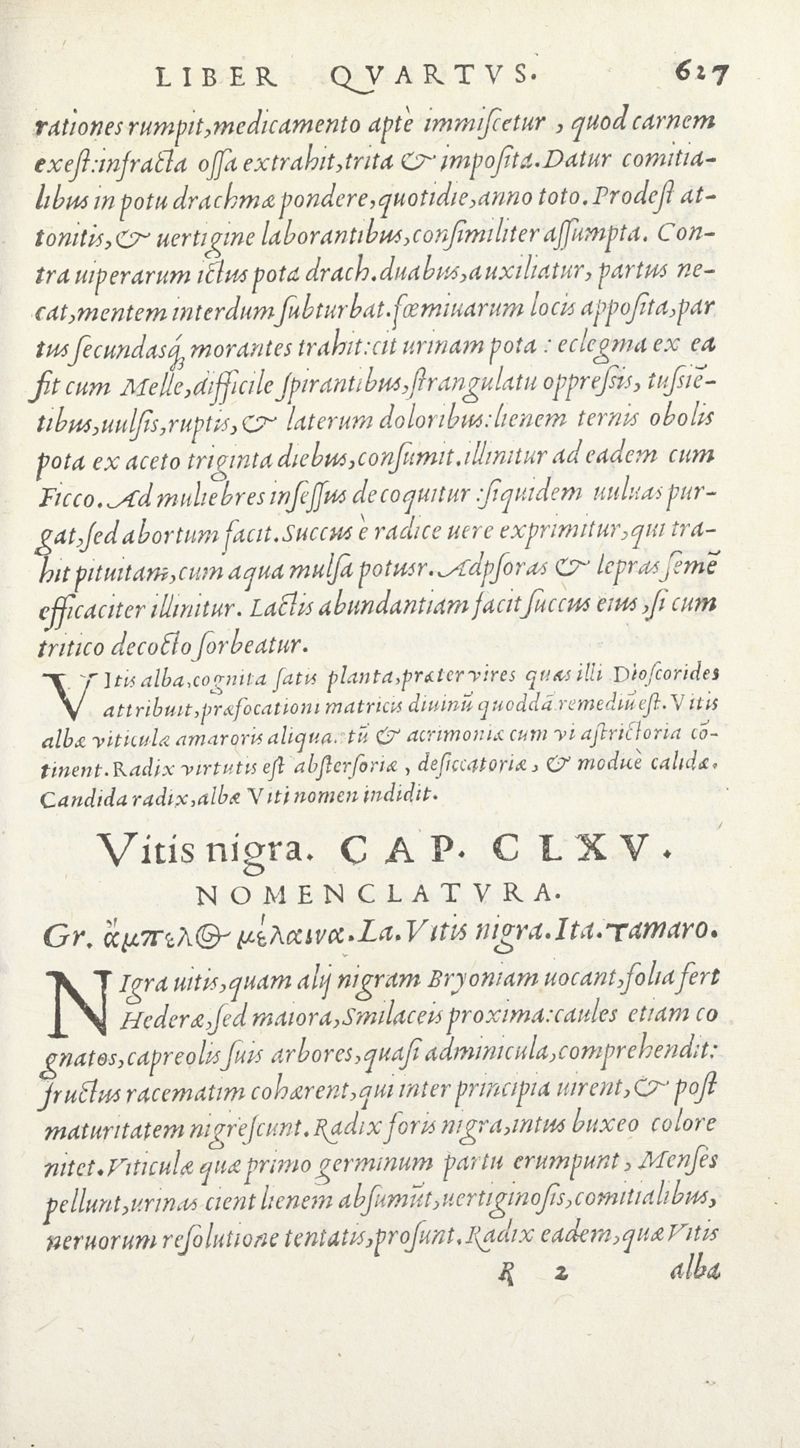 LIBER QVARTVS. 627
rationes rumpit, medicamento aptè immiscetur, quod carnem
exest: infracta ossa extrahit, trita & imposita. Datur comitia-
libus in potu drachmæ pondere, quotidie, anno toto. Prodest at-
tonitis, & uertigine laborantibus, consimiliter assumpta. Con-
tra uiperarum ictus pota drach. duabus, auxiliatur, partus ne-
cat, mentem interdum subturbat. fœmiuarum locis apposita, par
tus secundasq́ue morantes trahit: cit urinam pota: eclegma ex ea
fit cum Melle, difficile spirantibus, strangulatu oppressis, tussiē-
tibus, uulsis, ruptis, & laterum doloribus: lienem ternis obolis
pota ex aceto triginta diebus, consumit. illinitur ad eadem cum
Ficco. Ad muliebres insessus decoquitur: siquidem uuluas pur-
gat, sed abortum facit. Succus è radice uere exprimitur, qui tra-
hit pituitam, cum aqua mulsa potusr. Ad psoras & lepras semē
efficaciter illinitur. Lactis abundantiam facit succus eius, si cum
tritico decocto sorbeatur.
VItis alba, cognita satis planta, præter vires quas illi Dioscorides
attribuit, præfocationi matricis diuinū quoddā remediū est. Vitis
albæ viticulæ amaroris aliqua. tū & acrimoniæ cum vi astrictoria cō-
tinent. Radix virtutis est abstersoriæ, desiccatoriæ, & modicè calidæ.
Candida radix, albæ Viti nomen indidit.
Vitis nigra. CAP. CLXV.
NOMENCLATVRA.
Gr. ἄμπελος μέλαινα. La. Vitis nigra. Ita. Tamaro.
NIgra uitis, quam alij nigram Bryoniam uocant, folia fert
Hederæ, sed maiora, Smilaceis proxima: caules etiam co
gnatos, capreolis suis arbores, quasi adminicula, comprehendit:
fructus racematim cohærent, qui inter principia uirent, & post
maturitatem nigrescunt. Radix foris nigra, intus buxeo colore
nitet. Viticulæ quæ primo germinum partu erumpunt, Menses
pellunt, urinas cient lienem absumūt, uertiginosis, comitialibus,
neruorum resolutione tentatis, prosunt. Radix eadem, quæ Vitis
R 2 alba